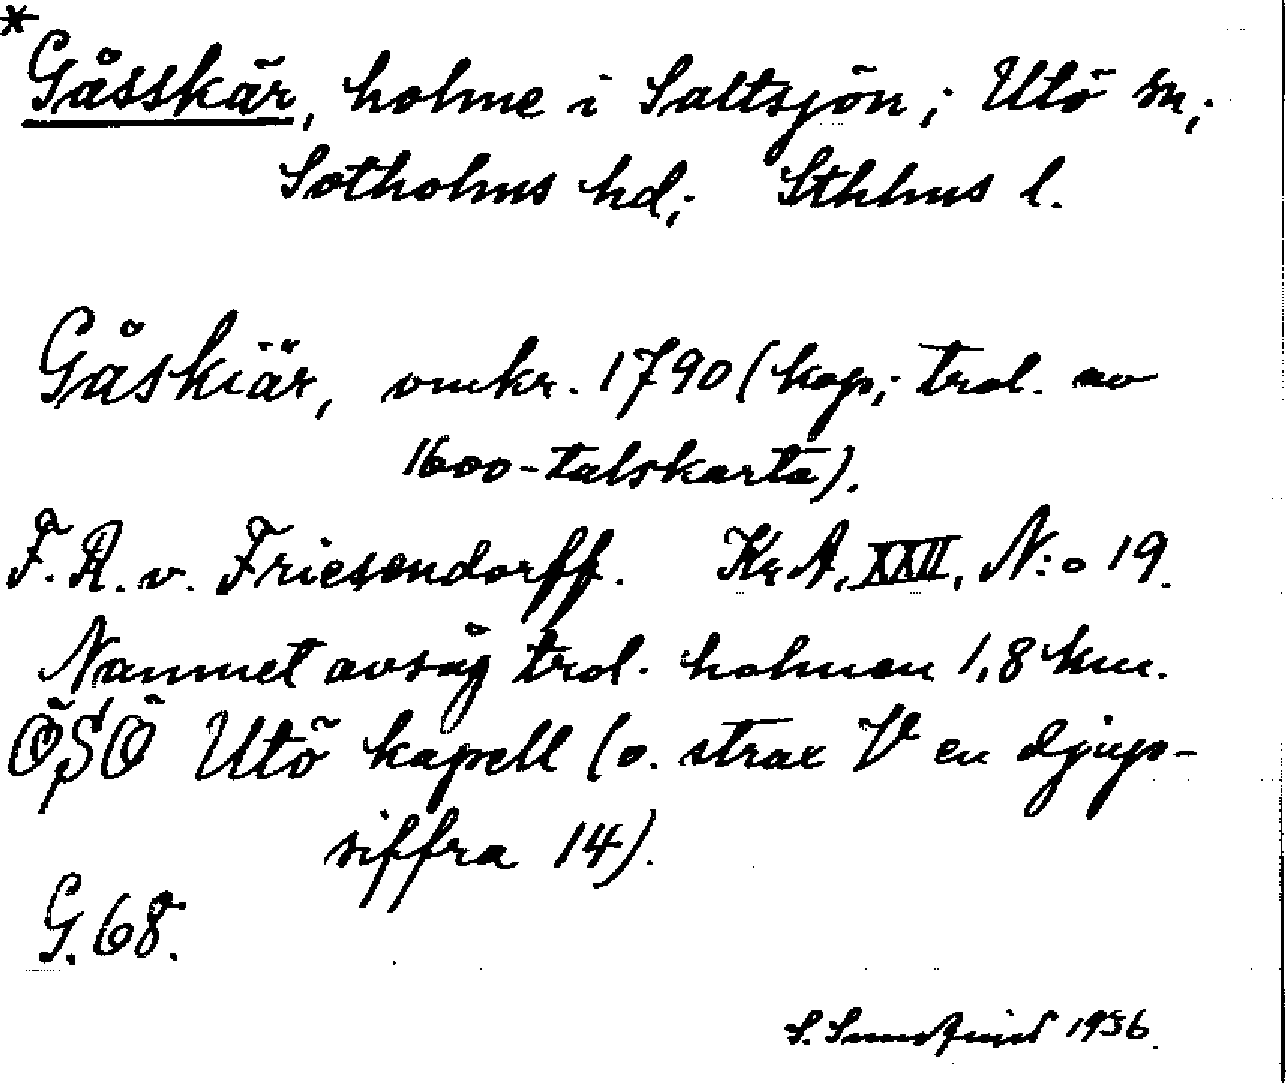 *
Gåsskär, holme i Saltsjön; Utö sn;
Sotholms hd; Sthlms l.
Gåskiär, omkr. 1790 (kop; trol. av
1600-talskarta).
F. A. v. Friesendorff. Kr A. XXII, N:o 19.
Namnet avsåg trol. holmen 1,8 km.
ÖSÖ Utö kapell (o. strax V en djup-
siffra 14).
G. 68.
S. Sundqvist 1936.